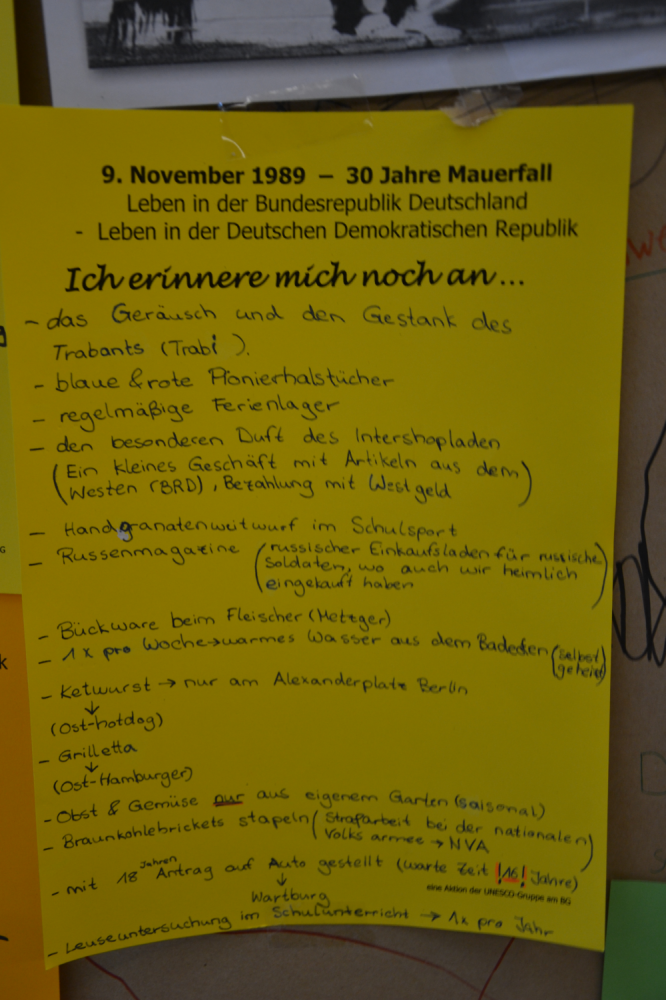 9. November 1989 – 30 Jahre Mauerfall
Leben in der Bundesrepublik Deutschland
- Leben in der Deutschen Demokratischen Republik
Ich erinnere mich noch an...
- das Geräusch und den Gestank des
Trabants (Trabi).
- blaue & rote Pionierhalstücher
- regelmäßige Ferienlager
- den besonderen Duft des Intershopladen
(Ein kleines Geschäft mit Artikeln aus dem
Westen (BRD), Bezahlung mit Westgeld)
- Handgranatenweitwurf im Schulsport
- Russenmagazine (russischer Einkaufsladen für russische
Soldaten, wo auch wir heimlich
eingekauft haben)
- Bückware beim Fleischer (Metzger)
- 1x pro Woche → warmes Wasser aus dem Badeofen (selbst
geheizt)
- Ketwurst → nur am Alexanderplatz Berlin
↓
(Ost-hotdog)
- Grilletta
↓
(Ost-Hamburger)
- Obst & Gemüse nur aus eigenem Garten (saisonal)
- Braunkohlebrickets stapeln (Strafarbeit bei der nationalen
Volks armee → NVA)
- mit 18 Jahren Antrag auf Auto gestellt (warte Zeit !16! Jahre)
↓
Wartburg
eine Aktion der UNESCO-Gruppe am BG
- Leuseuntersuchung im Schulunterricht → 1x pro Jahr